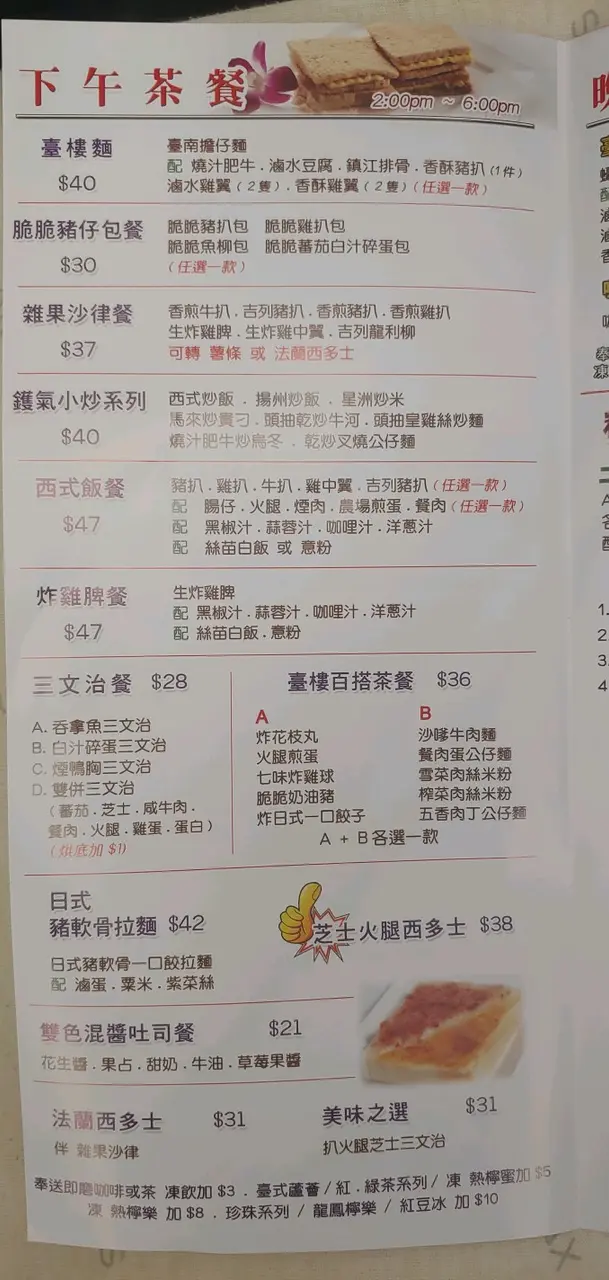 下午茶餐
2:00pm ~ 6:00pm
臺樓麵
$40
臺南擔仔麵
配 燒汁肥牛．滷水豆腐．鎮江排骨．香酥豬扒（1件）
滷水雞翼（2隻）．香酥雞翼（2隻）（任選一款）
脆脆豬仔包餐
$30
脆脆豬扒包 脆脆雞扒包
脆脆魚柳包 脆脆蕃茄白汁碎蛋包
（任選一款）
雜果沙律餐
$37
香煎牛扒．吉列豬扒．香煎豬扒．香煎雞扒
生炸雞脾．生炸雞中翼．吉列龍利柳
可轉 薯條 或 法蘭西多士
鑊氣小炒系列
$40
西式炒飯．揚州炒飯．星洲炒米
馬來炒貴刁．頭抽乾炒牛河．頭抽皇雞絲炒麵
燒汁肥牛炒烏冬．乾炒叉燒公仔麵
西式飯餐
$47
豬扒．雞扒．牛扒．雞中翼．吉列豬扒（任選一款）
配 腸仔．火腿．煙肉．農場煎蛋．餐肉（任選一款）
配 黑椒汁．蒜蓉汁．咖哩汁．洋蔥汁
配 絲苗白飯 或 意粉
炸雞脾餐
$47
生炸雞脾
配 黑椒汁．蒜蓉汁．咖哩汁．洋蔥汁
配 絲苗白飯．意粉
三文治餐 $28
A. 吞拿魚三文治
B. 白汁碎蛋三文治
C. 煙鴨胸三文治
D. 雙併三文治
（蕃茄．芝士．咸牛肉．
餐肉．火腿．雞蛋．蛋白）
（烘底加 $1）
臺樓百搭茶餐 $36
A
炸花枝丸
火腿煎蛋
七味炸雞球
脆脆奶油豬
炸日式一口餃子
B
沙嗲牛肉麵
餐肉蛋公仔麵
雪菜肉絲米粉
榨菜肉絲米粉
五香肉丁公仔麵
A + B 各選一款
日式
豬軟骨拉麵 $42
日式豬軟骨一口餃拉麵
配 滷蛋．粟米．紫菜絲
芝士火腿西多士 $38
雙色混醬吐司餐 $21
花生醬．果占．甜奶．牛油．草莓果醬
法蘭西多士 $31
伴 雜果沙律
美味之選 $31
扒火腿芝士三文治
奉送即磨咖啡或茶 凍飲加 $3．臺式蘆薈 / 紅．綠茶系列 / 凍 熱檸蜜加 $5
凍 熱檸樂 加 $8．珍珠系列 / 龍鳳檸樂 / 紅豆冰 加 $10
1.
2
3
4